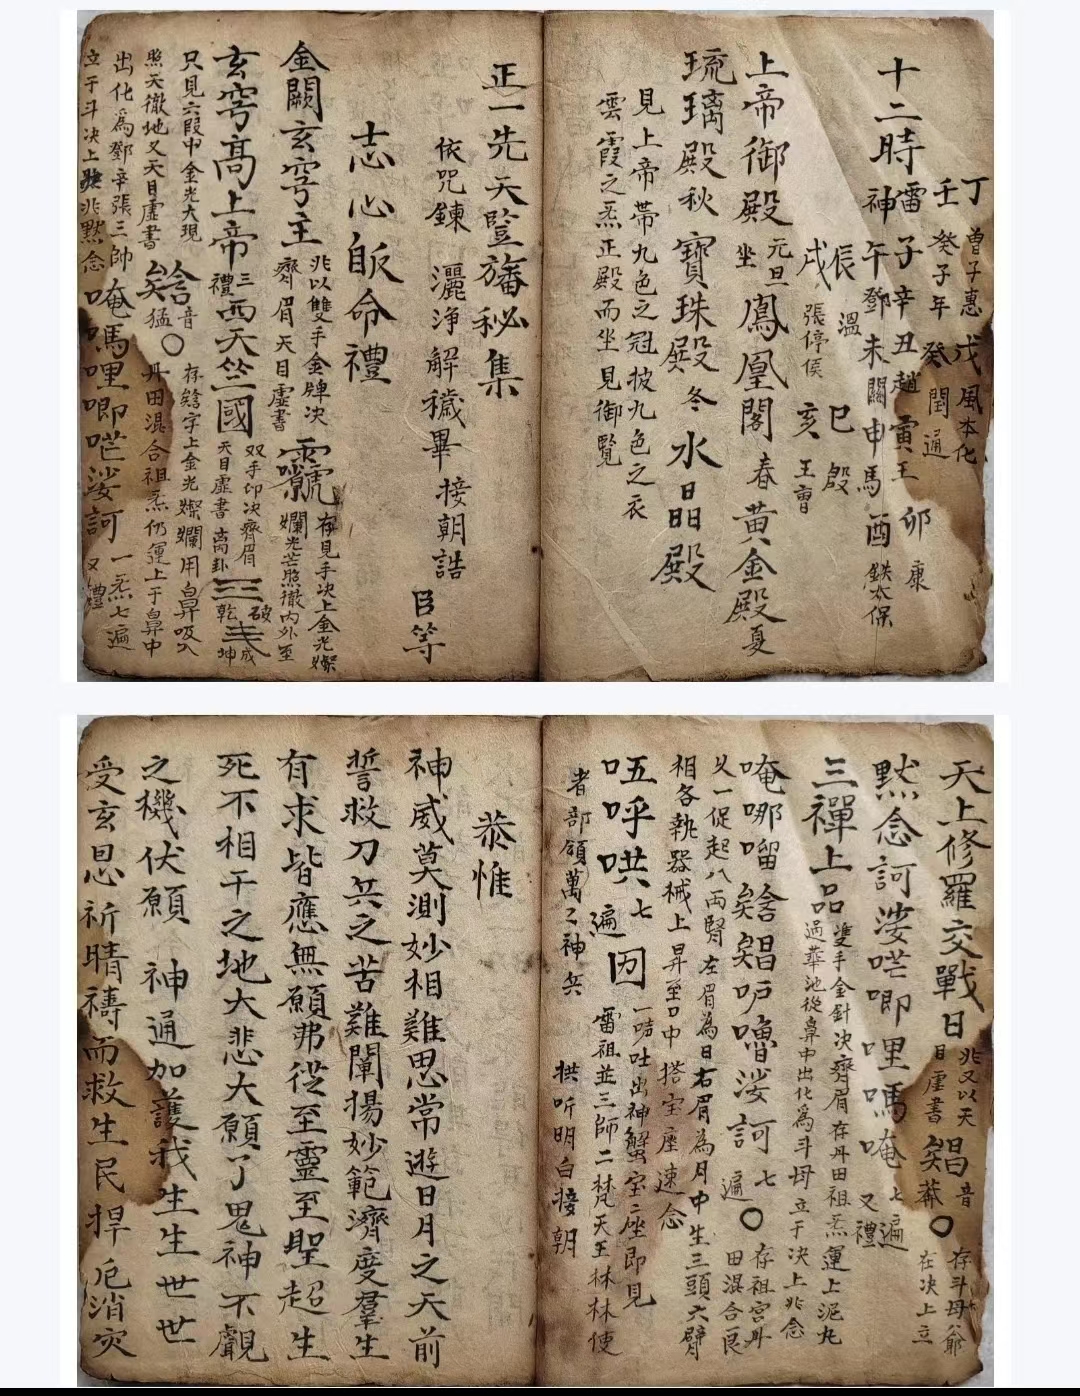 十二時神
丁壬
曾子惠
癸子年
戊癸
風本化
閏通
雷子辛丑趙寅王卯康
午鄧未關申馬酉鉄太保
辰溫巳殷
戌張停侯亥王曺
上帝御殿元旦坐鳳凰閣春黄金殿夏
琉璃殿秋寶珠殿冬水日明殿
見上帝帶九色之冠披九色之衣
雲霞之炁正殿而坐見御覽
正一先天𧯦旛秘集
依咒鍊灑淨解穢畢接朝誥
臣等
志心皈命禮
金闕玄穹主
兆以雙手金牌决
齊眉天目虛書
存見手决上金光燦
爛光芒照徹内外至
玄穹高上帝三禮西天竺國
双手卬决齊眉
天目虛書离卦
乾破坤成
只見六叚中金光大現
照天徹地又天目虛書
音猛〇
存字上金光燦爛用鼻吸入
丹田混合祖炁仍運上于鼻中
出化為鄧辛張三帥
立于斗决上兆黙念唵嗎哩唧咜娑訶一炁七遍又禮
天上修羅交戰日
兆又以天目虛書
音〇
存斗母爺
在决上立
黙念訶娑咜唧哩嗎唵七遍又禮
三禪上品
雙手金針决齊眉存丹田祖炁運上泥丸
過華池從鼻中出化為斗母立于决上兆念
唵哪㗰嚕娑訶七遍〇
存祖宫丹田混合艮
乂一促起八两腎左眉為日右眉為月中生三頭六臂
相各執器械上昇至口中搭宝座速念
㕶呼哄七遍囙
一咭吐出神蟹宝座即見
雷祖並三師二梵天王林林使
者部領萬二神兵拱听明白接朝
恭惟
神威莫測妙相難思常逰日月之天前
誓救刀兵之苦難闡揚妙範濟度羣生
有求皆應無願弗從至靈至聖超生
死不相干之地大悲大願了鬼神不覩
之機伏願神通加護我生生世世
受玄恩祈晴禱而救生民捍厄消灾